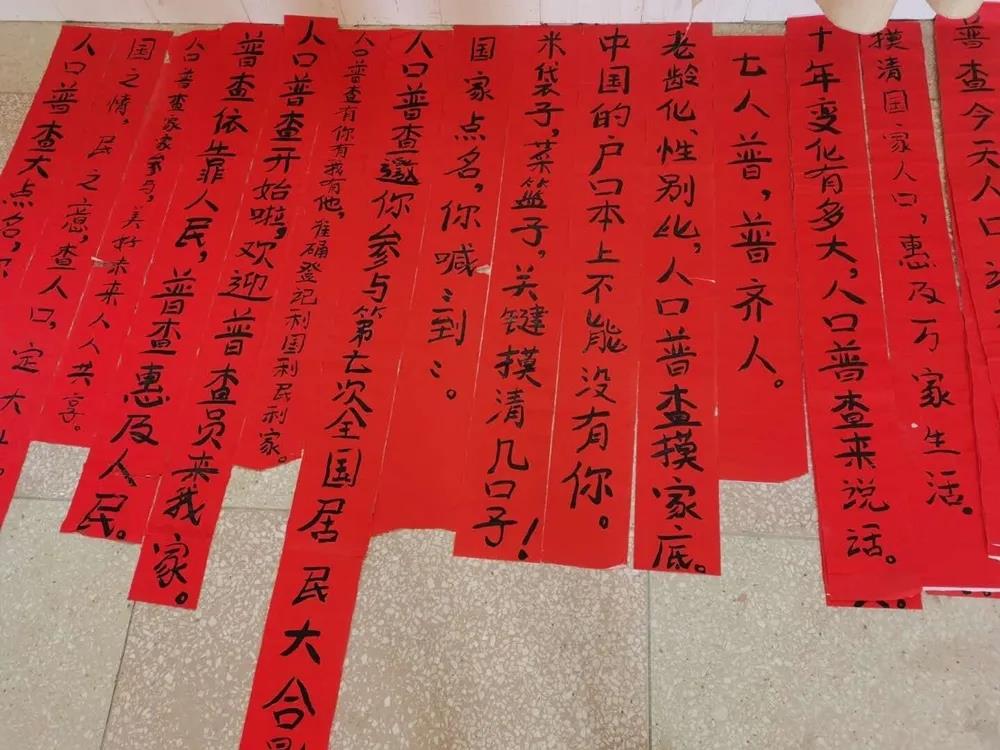 人口普查大点名，
国之情，民之意，查人口，定大
人口普查家家参与，美好未来人人共享。
普查依靠人民，普查惠及人民。
人口普查开始啦，欢迎普查员来我家。
人口普查有你有我有他，准确登记利国利民利家。
人口普查邀你参与第七次全国居民大合
国家点名，你喊“到”。
米袋子，菜篮子，关键摸清几口子！
中国的户口本上不能没有你。
老龄化，性别比，人口普查摸家底。
七人普，普齐人。
十年变化有多大，人口普查来说话。
摸清国家人口，惠及万家生活。
普查今天人口